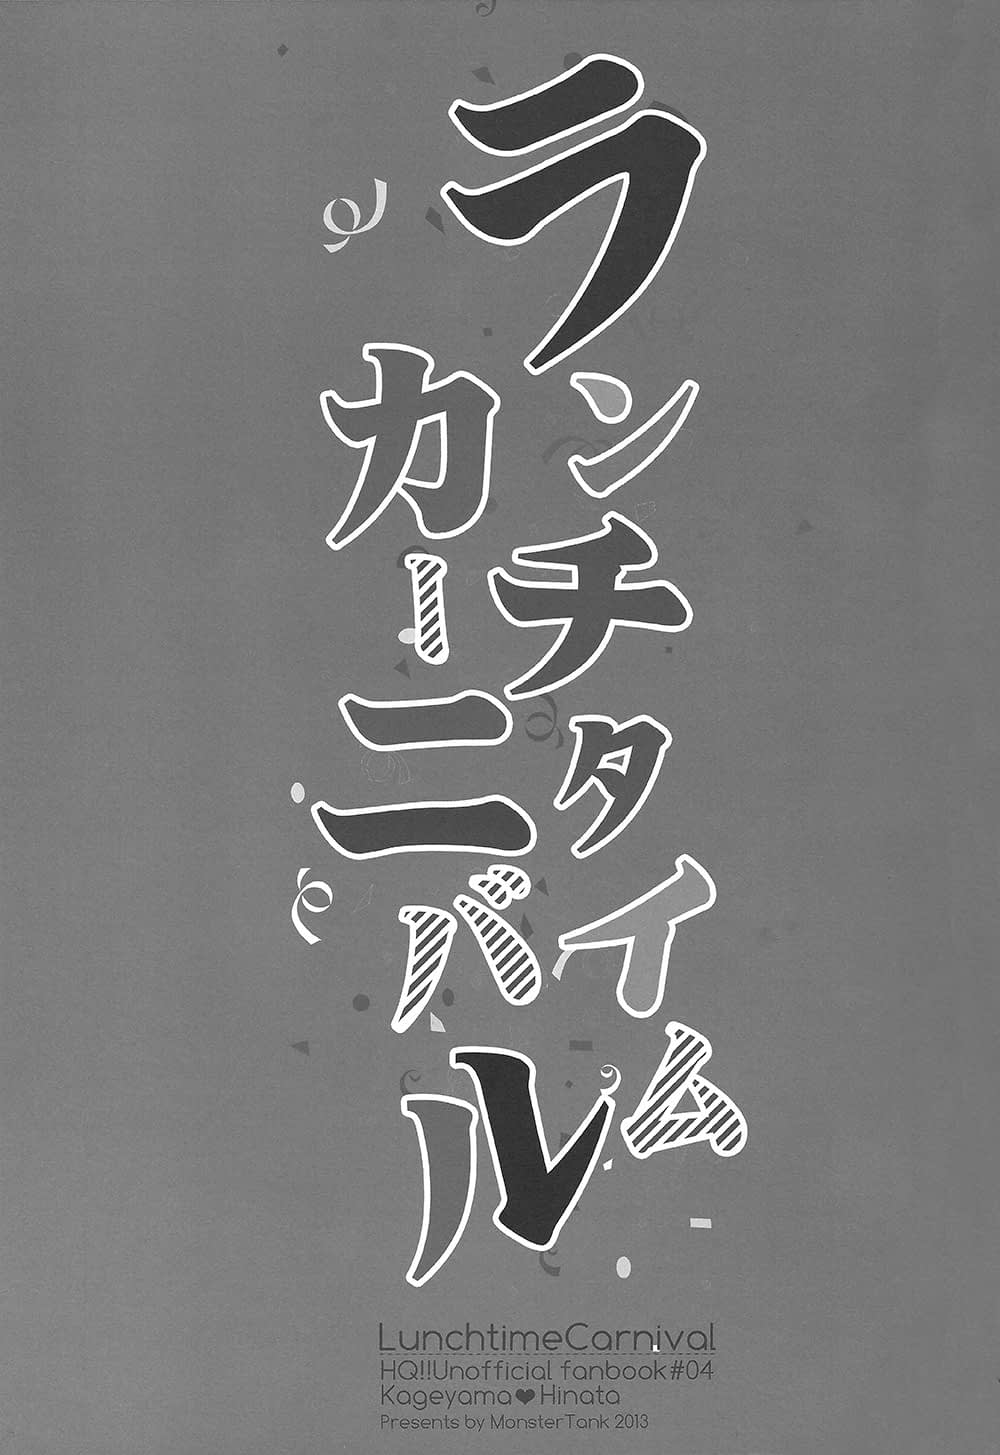 ランチタイム
カーニバル
LunchtimeCarnival
HQ!!Unofficial fanbook#04
Kageyama❤Hinata
Presents by MonsterTank 2013